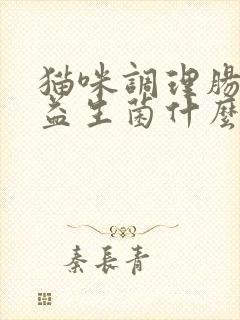 猫咪調理腸
益生菌什麼
秦長青